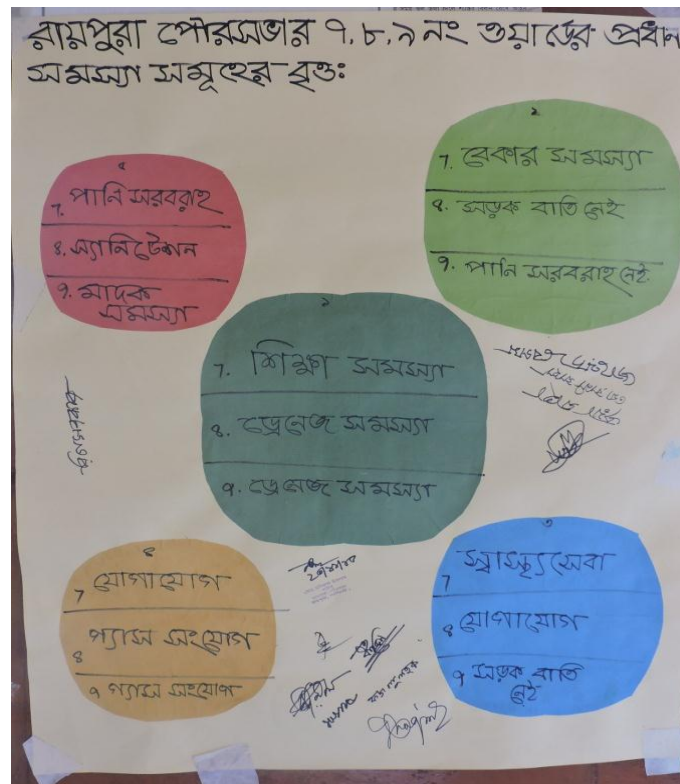 রায়পুরা পৌরসভার ৭,৮,৯ নং ওয়ার্ডের প্রধান
সমস্যা সমূহের বৃত্তঃ
৫
7. পানি সরবরাহ
8. স্যানিটেশন
9. মাদক
সমস্যা
২
7. বেকার সমস্যা
8. সড়ক বাতি নেই
9. পানি সরবরাহ নেই
১
7. শিক্ষা সমস্যা
8. ড্রেনেজ সমস্যা
9. ড্রেনেজ সমস্যা
৪
7 যোগাযোগ
8 গ্যাস সংযোগ
9 গ্যাস সংযোগ
৩
7 স্বাস্থ্যসেবা
8 যোগাযোগ
9 সড়ক বাতি
নেই